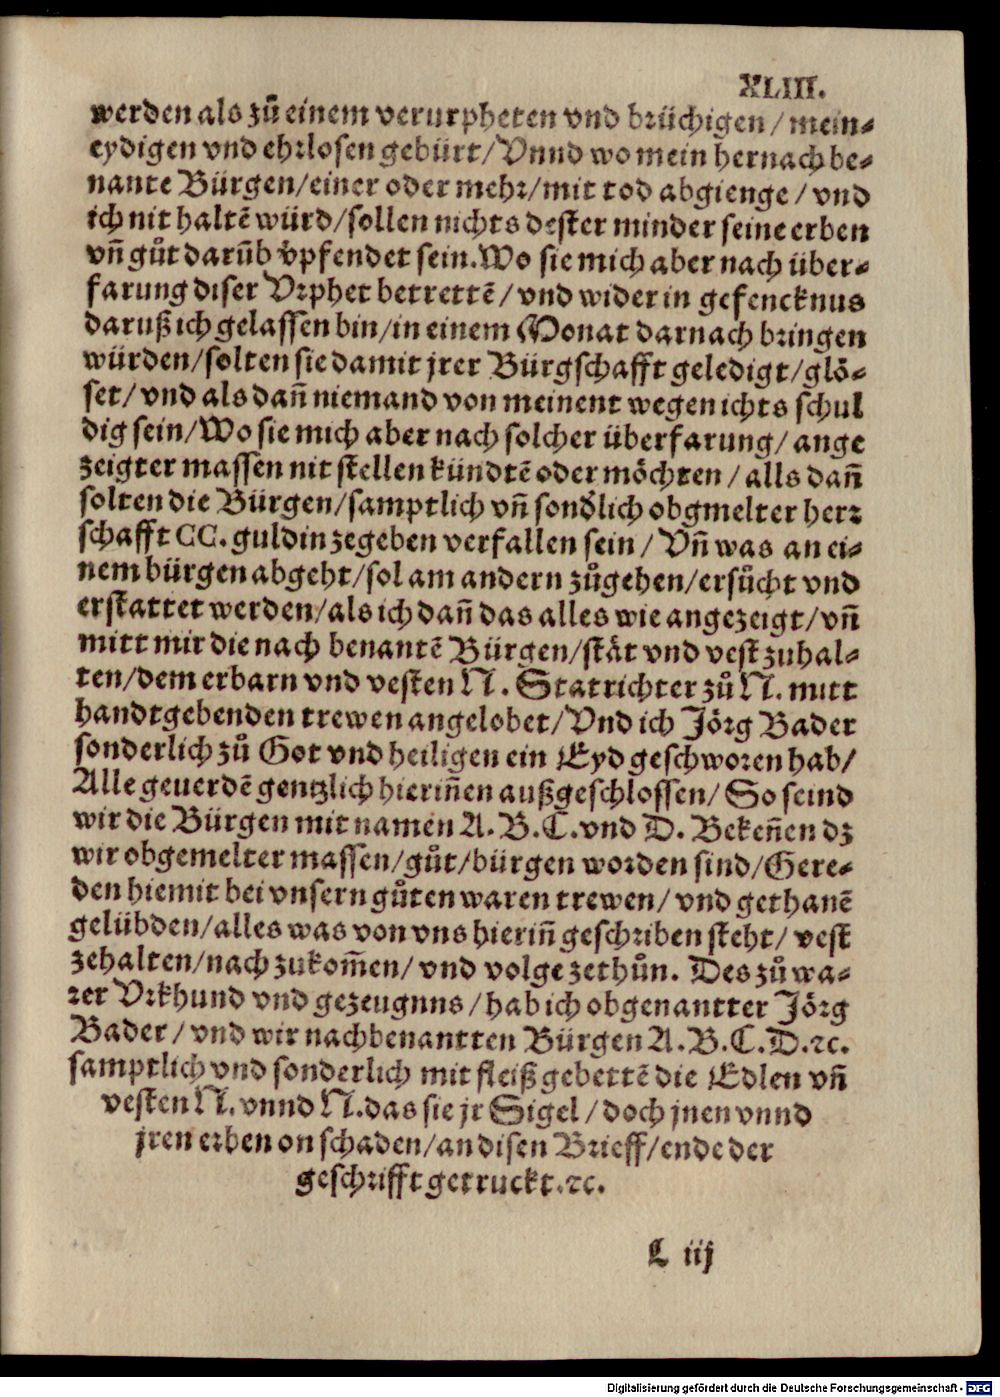 XLIII.
werden als zů einem verurpheten vnd brüchigen / mein⸗
eydigen vnd ehrlosen gebürt/ Vnnd wo mein hernach be⸗
nante Bürgen/einer oder mehr/mit tod abgienge / vnd
ich nit haltē würd/sollen nichts dester minder seine erben
vñ gůt darüb v̊pfendet sein. Wo sie mich aber nach über⸗
farung diser Vrphet betrettē / vnd wider in gefencknus
daruß ich gelassen bin/in einem Monat darnach bringen
würden/solten sie damit jrer Bürgschafft geledigt/glö⸗
set/ vnd als dañ niemand von meinent wegen ichts schul
dig sein/Wo sie mich aber nach solcher überfarung/ ange
zeigter massen nit stellen kündtē oder möchten / alls dañ
solten die Bürgen/samptlich vñ sond̕lich obgmelter herr
schafft CC. guldin zegeben verfallen sein / Vñ was an ei⸗
nem bürgen abgeht/sol am andern zůgehen/ersůcht vnd
erstattet werden/als ich dañ das alles wie angezeigt/ vñ
mitt mir die nach benantē Bürgen/stät vnd vest zuhal⸗
ten/dem erbarn vnd vesten N. Statrichter zů N. mitt
handtgebenden trewen angelobet/Vnd ich Jörg Bader
sonderlich zů Got vnd heiligen ein Eyd geschworen hab/
Alle geuerdē gentzlich hieriñen außgeschlossen/ So seind
wir die Bürgen mit namen A. B. C. vnd D. Bekeñen dz
wir obgemelter massen/gůt/bürgen worden sind/Gere⸗
den hiemit bei vnsern gůten waren trewen/ vnd gethanē
gelübden/alles was von vns hieriñ geschriben steht/ vest
zehalten/nach zukom̄en/ vnd volge zethůn. Des zů wa⸗
rer Vrkhund vnd gezeugnns / hab ich obgenantter Jörg
Bader / vnd wir nachbenantten Bürgen A. B. C. D. ꝛc.
samptlich vnd sonderlich mit fleiß gebettē die Edlen vñ
vesten N. vnnd N. das sie jr Sigel / doch jnen vnnd
jren erben on schaden/an disen Brieff/ende der
geschrifft getruckt. ꝛc.
L iij
Digitalisierung gefördert durch die Deutsche Forschungsgemeinschaft - DFG